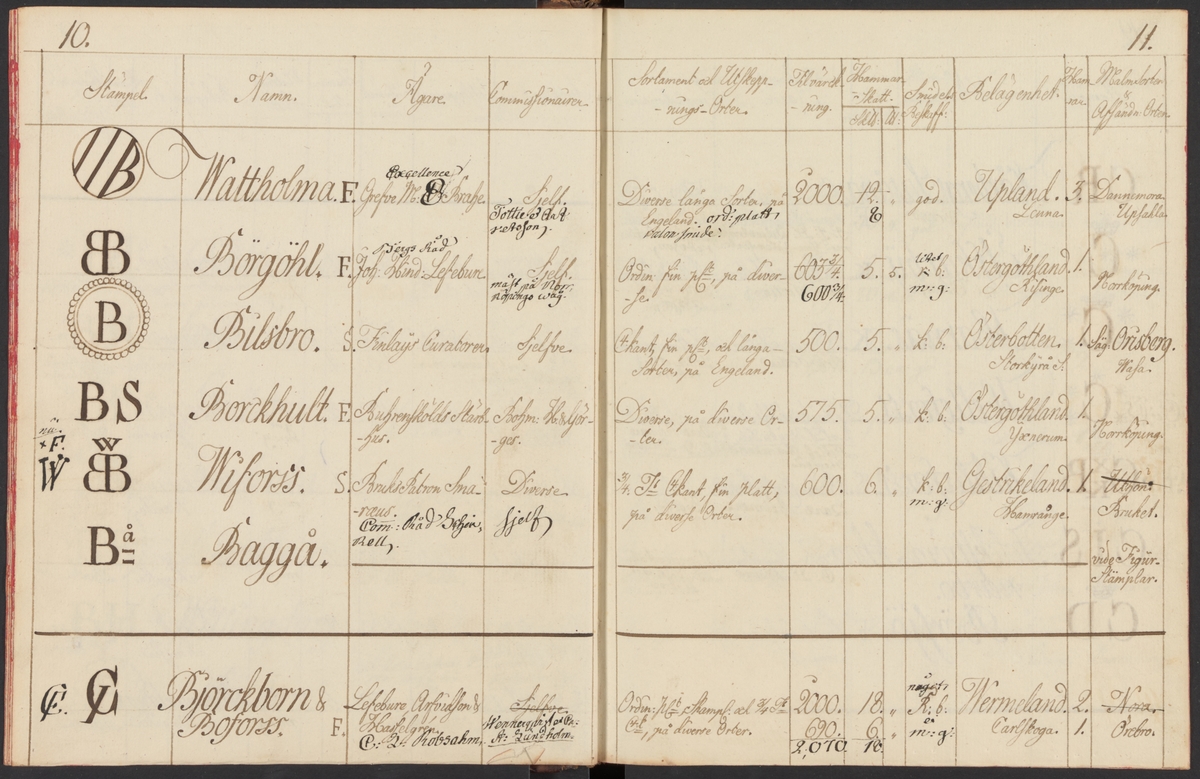 10.
11.
Stämpel.
Namn.
Ägare.
Commissionairer.
Sortament och Utskepp-
-nings-Orter.
Tilvärck-
-ning.
Hammar-
-Skatt.
Smidets
Beskaff:
Belägenhet.
Ham-
rar.
Malmsorter
&
Afsändn: Orter.
Wattholma. F.
Excellence
Grefve M: Brahe.
Sjelf.
Tottie &
Diverse långa Sorter, på
Engeland. ord: platt,
2000.
12.
8
god.
Upland.
Lenna.
3.
Dannemora
Upsala.
B
Börgöhl. F.
Bergs Råd
Joh: Hind: Lefebure.
Sjelf.
mäst på Norr-
köpings wåg.
Ordin: fin plt, på diver-
-se.
603 3/4.
600 3/4.
5. 5.
k: b.
m: g:
Östergöthland.
Risinge.
1.
Norrköping.
B
Bilsbro. S.
Finlays Curatorer.
Sjelfve.
4kant, fin plt, och långa
Sorter, på Engeland.
500.
5. "
k: b.
Österbotten.
Storkyrå S.
1.
Säg. Orisberg.
Wasa.
BS
Borckhult. F.
Buhrenskölds Stärb-
-hus.
Bohm: H: & Gör-
-ges.
Diverse, på diverse Or-
-ter.
575.
5. "
k: b.
Östergöthland.
Yxnerum.
1.
Norrköping.
nu.
+F.
W
WB
Wiforss. S.
Bruks Patron Sma-
-ræus.
Com: Råd
Diverse
Sjelf,
3/4 Tt 4kant, fin platt,
på diverse Orter.
600.
6. "
k: b.
m: g:
Gestrikeland.
Hamrånge.
1.
Bruket.
Bå
Baggå.
vide Figur-
Stämplar.
C. G
Björckborn &
Boforss. F.
Lefebure, Arfvidson &
Hasselgren
C: Robsahm,
Sjelfve
A: Lundholm.
Ordin: plt, Stamp: och 3/4 Tt
4kt, på diverse Orter.
2000.
690.
2,070
18. "
6. "
18.
något
K: b.
m: g:
Wermeland.
Carlskoga.
2.
1.
Nora.
Örebro.